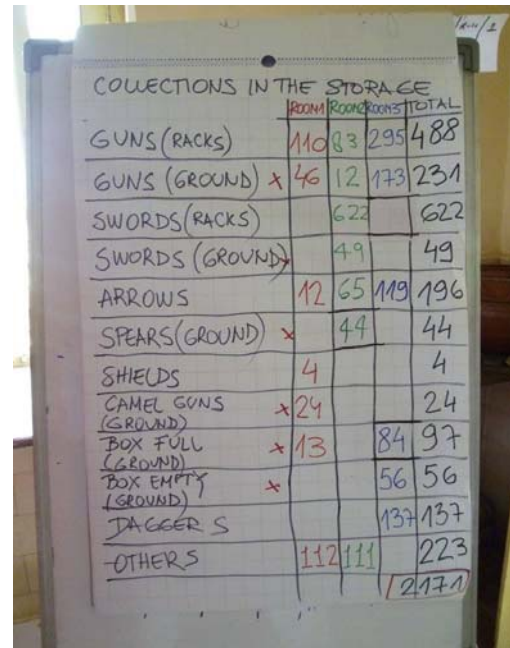 COLLECTIONS IN THE STORAGE
ROOM1 ROOM2 ROOM3 TOTAL
GUNS (RACKS) 110 83 295 488
GUNS (GROUND) x 46 12 173 231
SWORDS (RACKS) 622 622
SWORDS (GROUND) x 49 49
ARROWS 12 65 119 196
SPEARS (GROUND) x 44 44
SHIELDS 4 4
CAMEL GUNS
(GROUND) x 24 24
BOX FULL
(GROUND) x 13 84 97
BOX EMPTY
(GROUND) x 56 56
DAGGERS 137 137
-OTHERS 112 111 223
2171